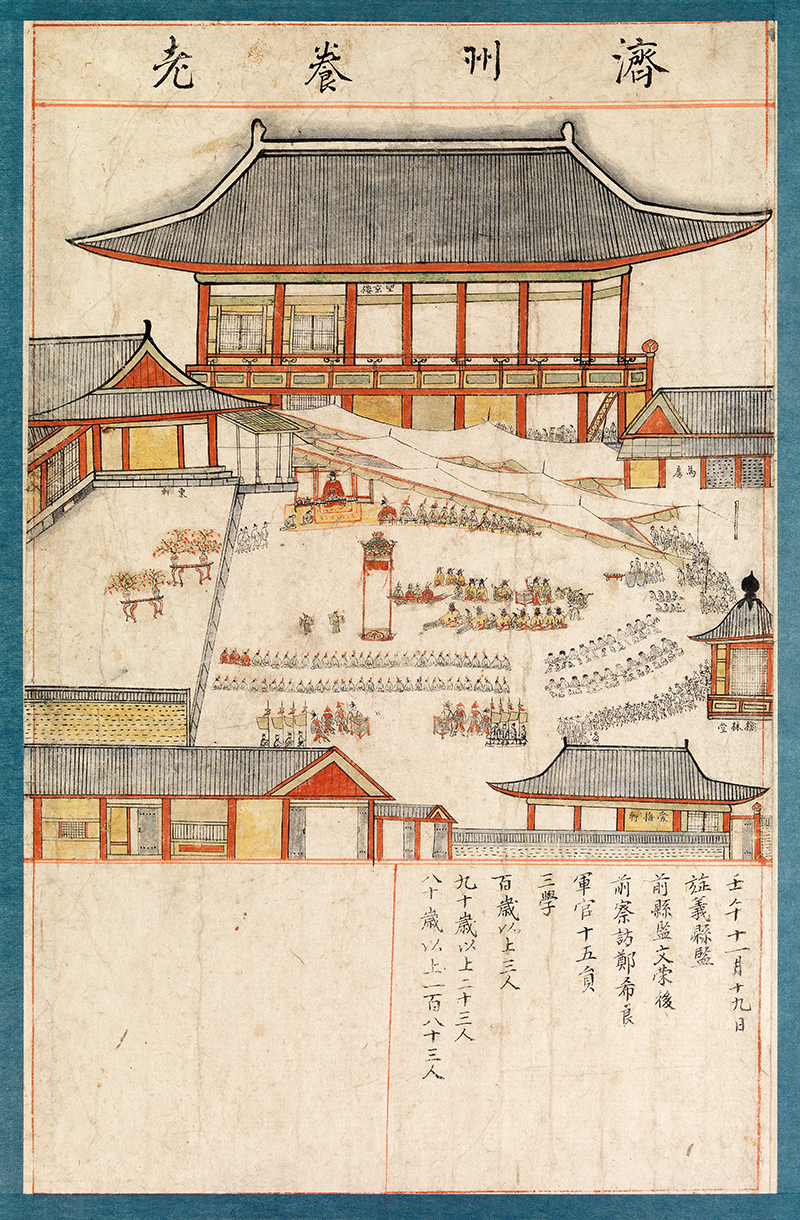 濟州養老
望京樓
東軒
馬
橘林堂
愛梅軒
壬午十一月十九日
旌義縣監
前縣監文榮後
前察訪鄭希良
軍官十五員
三學
百歲以上三人
九十歲以上二十三人
八十歲以上一百八十三人